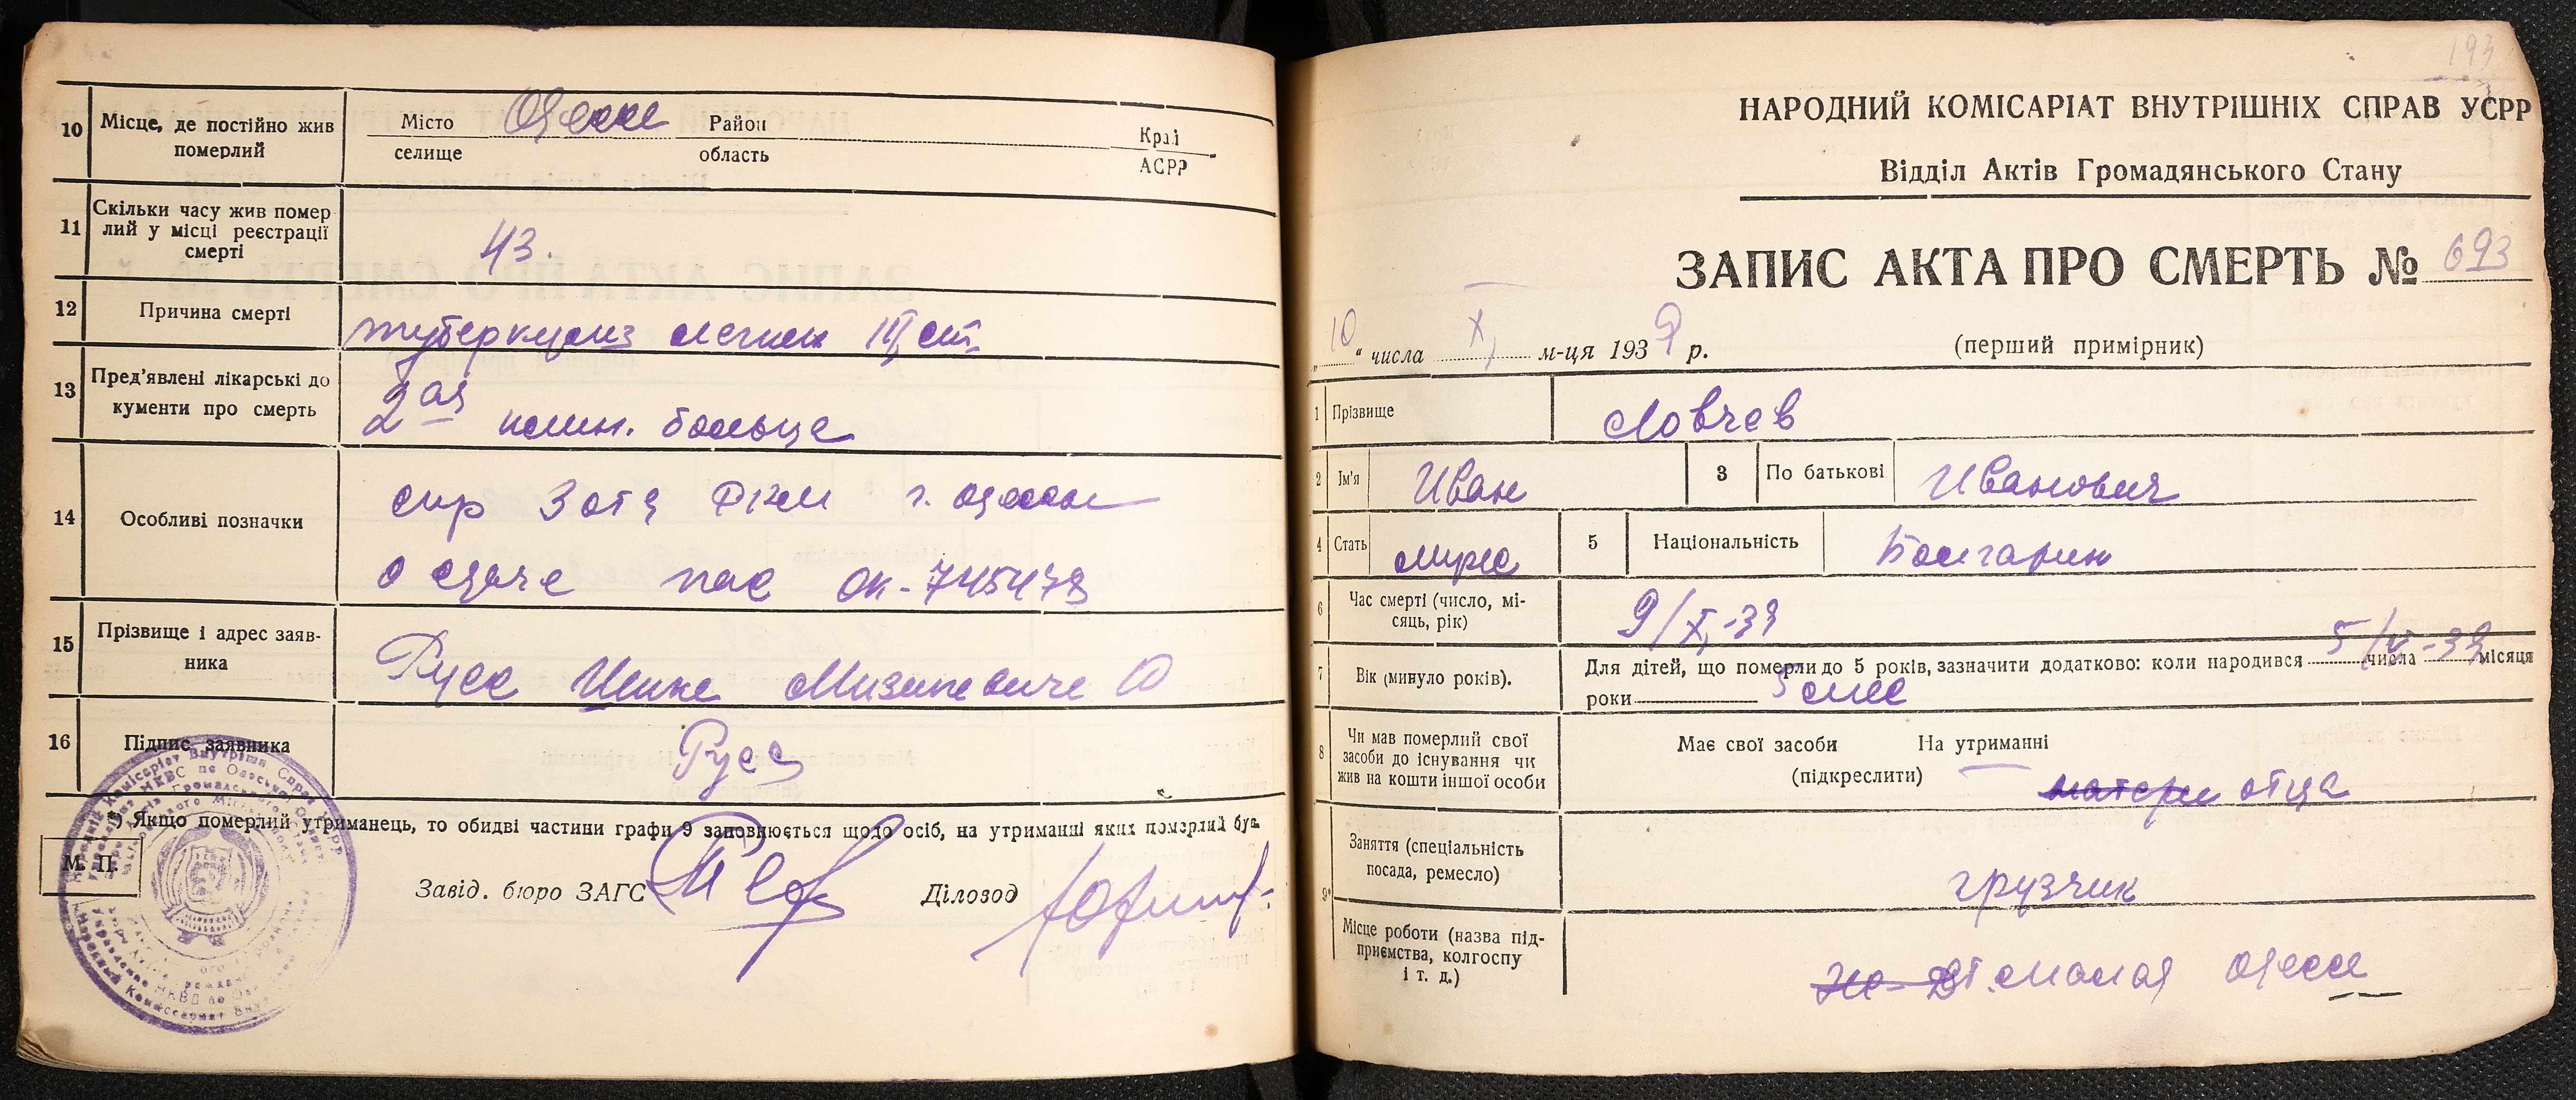 10 Місце, де постійно жив померлий
Місто Одесса Район Край
селище область АСРР
11 Скільки часу жив помер
лий у місці реєстрації
смерті
43.
12 Причина смерті
туберкулиз легких III ст.
13 Пред'явлені лікарські до
кументи про смерть
2ая клин. больце
14 Особливі позначки
спр 3 отд РКМ г. Одессы
о сдаче пас ОК-745479
15 Прізвище і адрес заяв-
ника
Русс
16 Підпис заявника
Русс
*) Якщо померлий утриманець, то обидві частини графи 9 заповнюється щодо осіб, на утриманні яких померлий був.
М. П.
Завід. бюро ЗАГС Діловод
193
НАРОДНИЙ КОМІСАРІАТ ВНУТРІШНІХ СПРАВ УСРР
Відділ Актів Громадянського Стану
ЗАПИС АКТА ПРО СМЕРТЬ № 693
„10“ числа X м-ця 1939 р. (перший примірник)
1 Прізвище Ловчев
2 Ім'я Иван 3 По батькові Иванович
4 Стать муже 5 Національність Болгарин
6 Час смерті (число, мі-
сяць, рік)
9/X-39
7 Вік (минуло років).
Для дітей, що померли до 5 років, зазначити додатково: коли народився 5/V-39 числа місяця
роки 5 мес
8 Чи мав померлий свої
засоби до існування чи
жив на кошти іншої особи
Має свої засоби На утриманні
(підкреслити) матери отца
9* Заняття (спеціальність
посада, ремесло)
грузчик
Місце роботи (назва під-
приємства, колгоспу
і т. д.)
ст. Малая Одесса